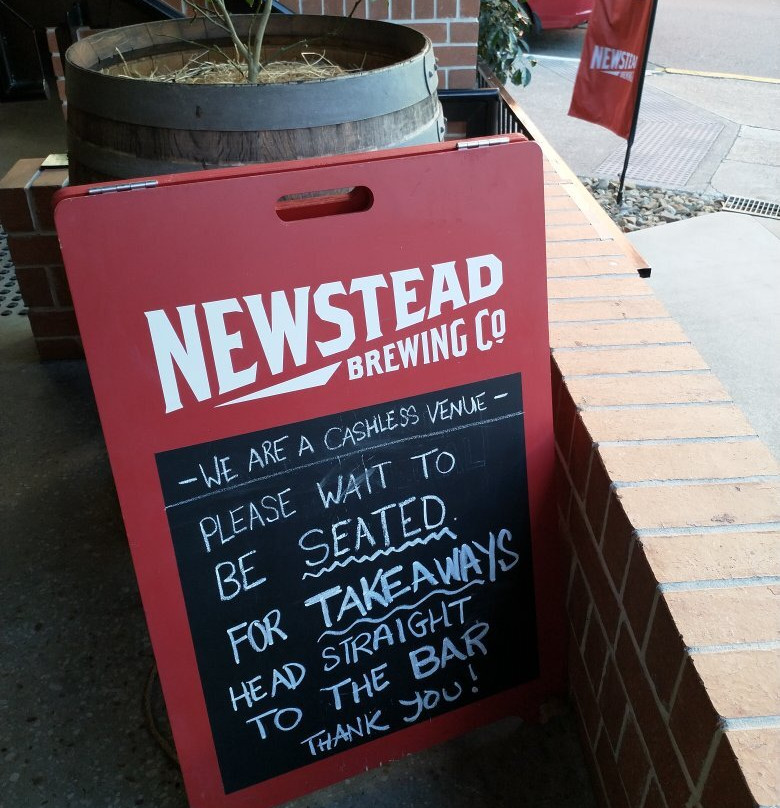 NEWSTEAD
BREWING CO
-WE ARE A CASHLESS VENUE-
PLEASE WAIT TO
BE SEATED.
FOR TAKEAWAYS
HEAD STRAIGHT
TO THE BAR
THANK YOU!